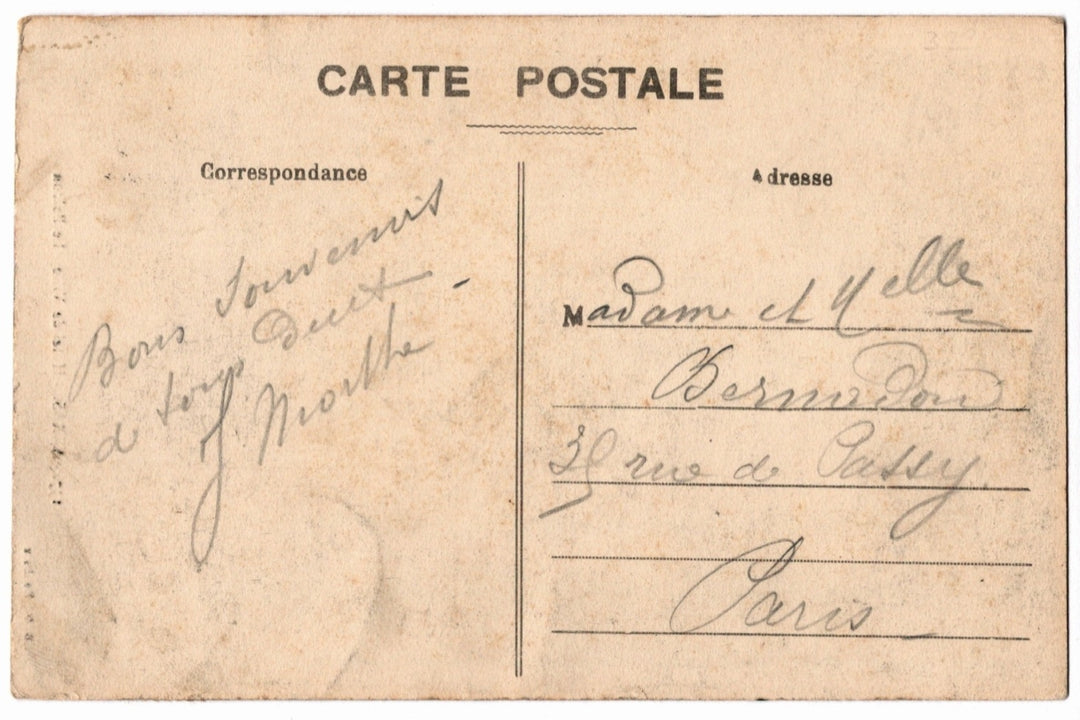 CARTE POSTALE
Correspondance
Adresse
Bons Souvenirs
de tous
J. Marthe
Madame et Melle
Bernadou
35 rue de Passy.
Paris